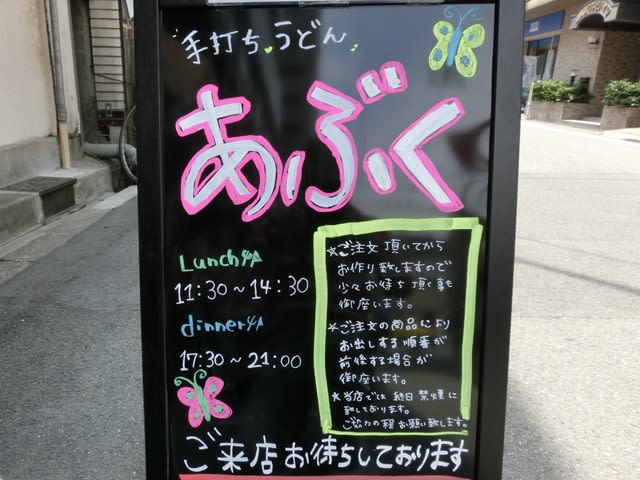 手打ちうどん
あぶく
Lunch
11:30～14:30
dinner
17:30～21:00
★ご注文頂いてから
お作り致しますので
少々お待ち頂く事も
御座います。
★ご注文の商品により
お出しする順番が
前後する場合が
御座います。
★当店では終日禁煙に
致しております。
ご協力の程お願い致します。
ご来店お待ちしております